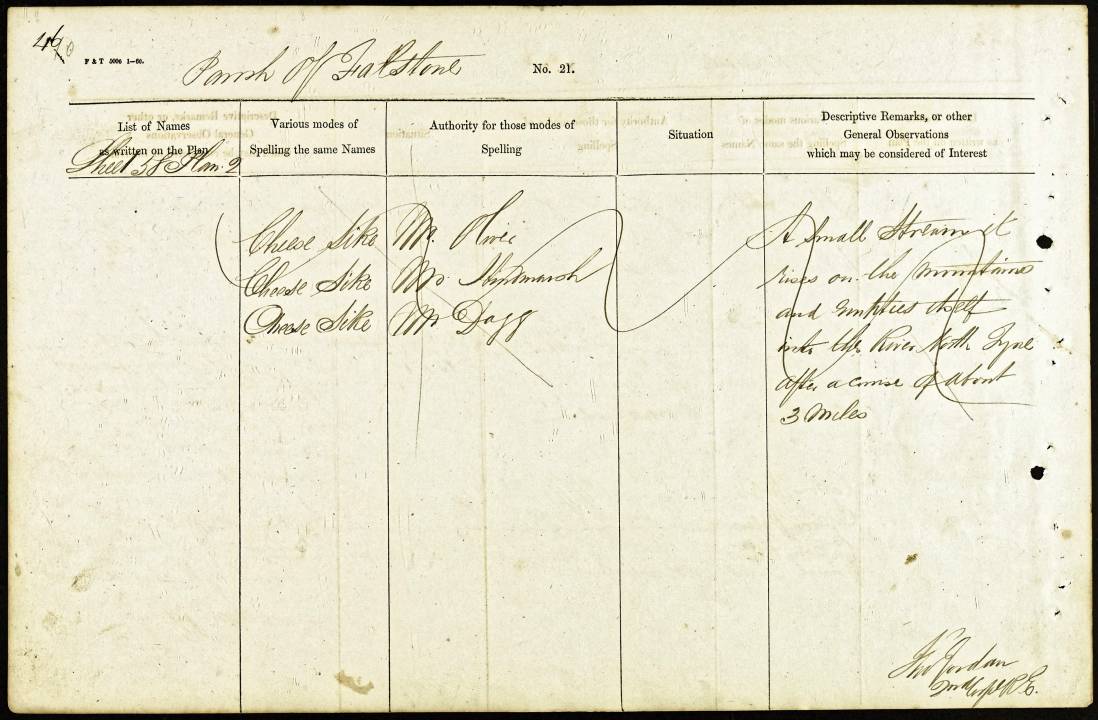 46
F & T 5000 1—60.
Parish Of Falstone No. 21.
List of Names
as written on the Plan
Various modes of
Spelling the same Names
Authority for those modes of
Spelling
Situation
Descriptive Remarks, or other
General Observations
which may be considered of Interest
Sheet 58 Plan. 2
Cheese Sike Mr. Oliver
Cheese Sike Mr.
Cheese Sike Mr Dagg
A Small Stream it
rises on the mountains
and empties itself
into the River North Tyne
after a course of about
3 Miles
Jordan
R. E.